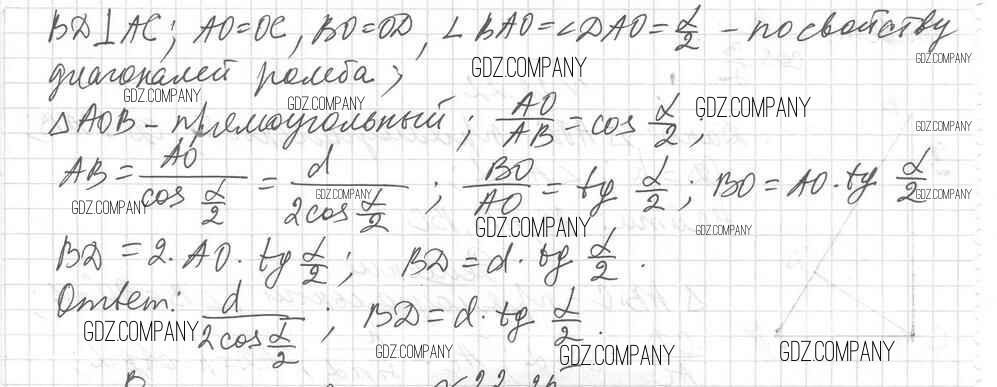 BD⊥AC; AO=OC, BO=OD, ∠BAO=∠DAO=α/2 – по свойству
диагоналей ромба;
GDZ.COMPANY
GDZ.COMPANY
GDZ.COMPANY
GDZ.COMPANY
△AOB – прямоугольный; AO/AB = cos α/2;
GDZ.COMPANY
GDZ.COMPANY
AB = AO/cos α/2 = d/2cos α/2; BO/AO = tg α/2; BO = AO · tg α/2
GDZ.COMPANY
GDZ.COMPANY
GDZ.COMPANY
GDZ.COMPANY
GDZ.COMPANY
BD = 2 · AO · tg α/2; BD = d · tg α/2.
Ответ: d/2cos α/2; BD = d · tg α/2.
GDZ.COMPANY
GDZ.COMPANY
GDZ.COMPANY
GDZ.COMPANY